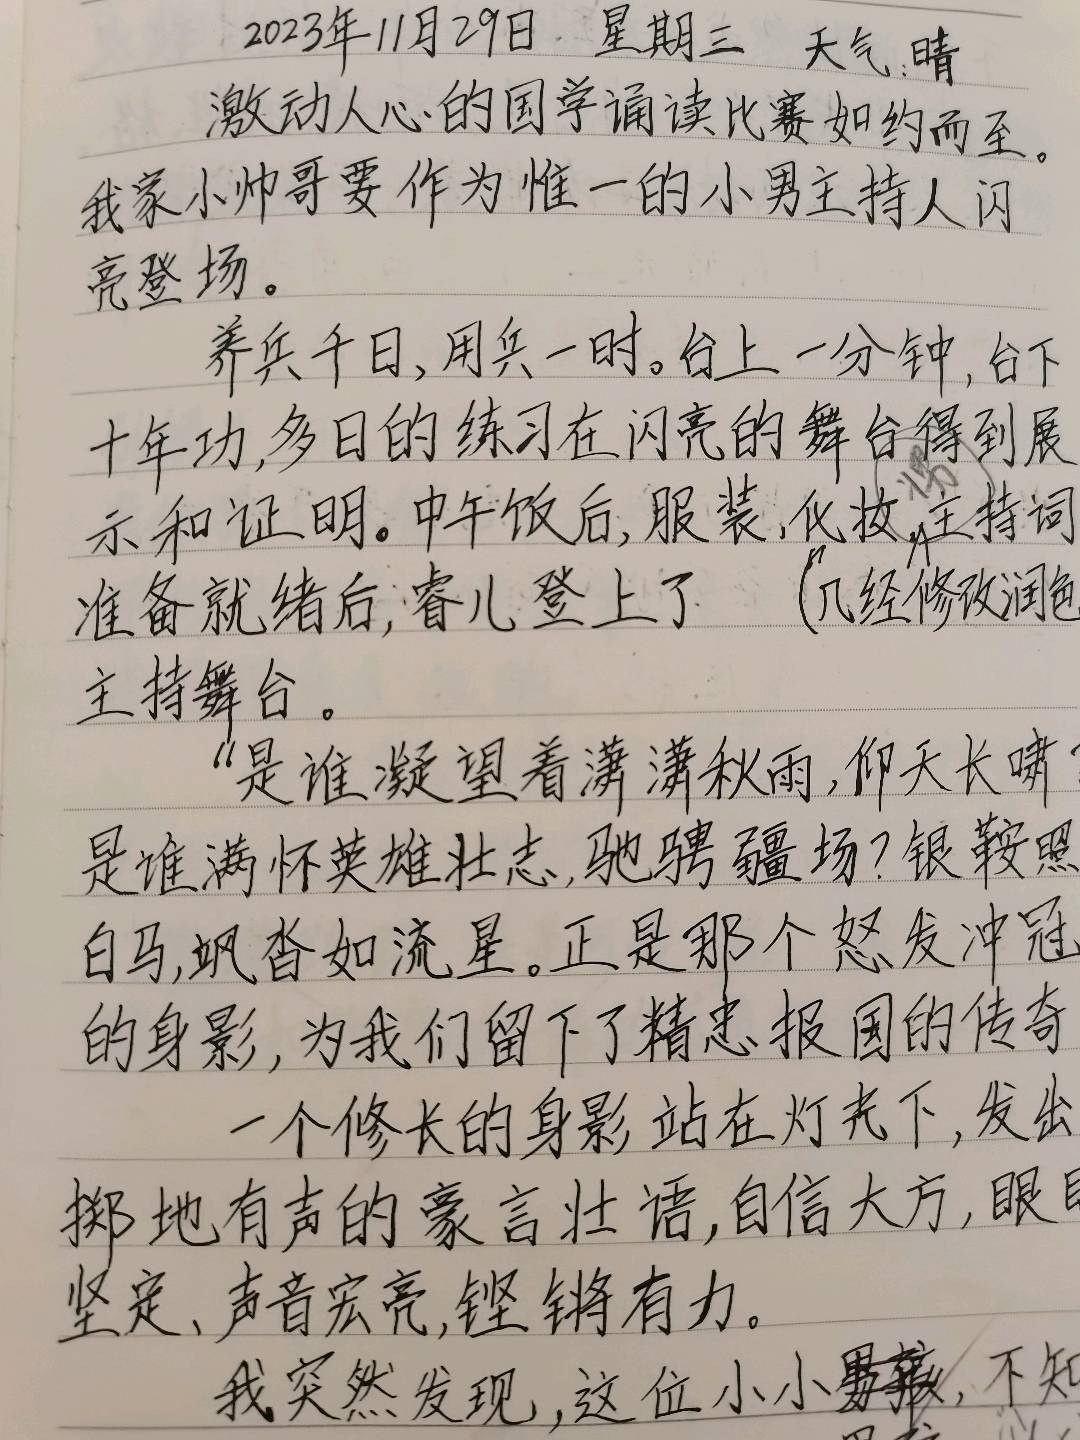 2023年11月29日 星期三 天气:晴
激动人心的国学诵读比赛如约而至。
我家小帅哥要作为惟一的小男主持人闪
亮登场。
养兵千日,用兵一时。台上一分钟,台下
十年功,多日的练习在闪亮的舞台得到展
示和证明。中午饭后,服装,化妆,主持词
准备就绪后,睿儿登上了 (几经修改润色
主持舞台。
“是谁凝望着潇潇秋雨,仰天长啸?
是谁满怀英雄壮志,驰骋疆场?银鞍照
白马,飒沓如流星。正是那个怒发冲冠
的身影,为我们留下了精忠报国的传奇
一个修长的身影站在灯光下,发出
掷地有声的豪言壮语,自信大方,眼目
坚定、声音宏亮,铿锵有力。
我突然发现,这位小小男孩,不知